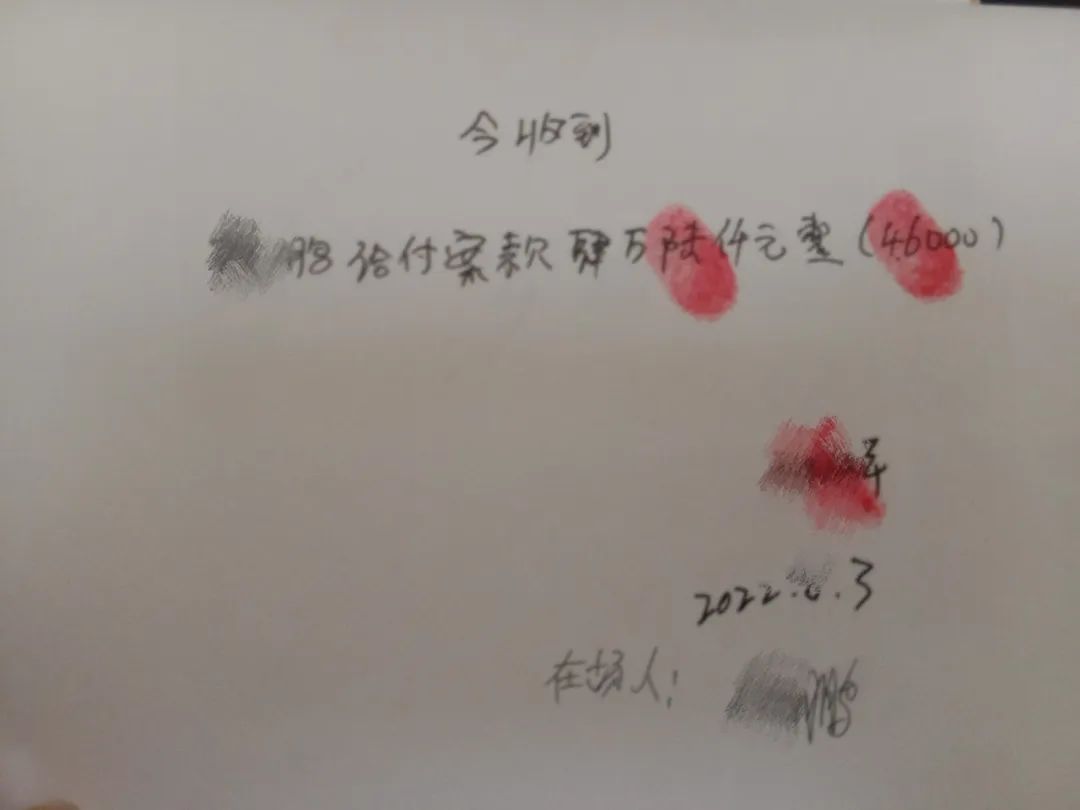 今收到
给付案款肆万陆仟元整(46000)
军
2022. .3
在场人:
鹏